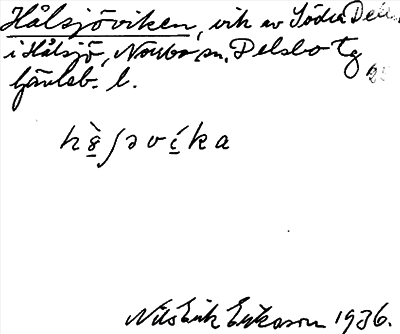 Hålsjöviken, vik av Södra Dellen
i Hålsjö, Norrbo sn, Delsbo tg
Gävleb. l.
Nils Erik Eriksson 1936.